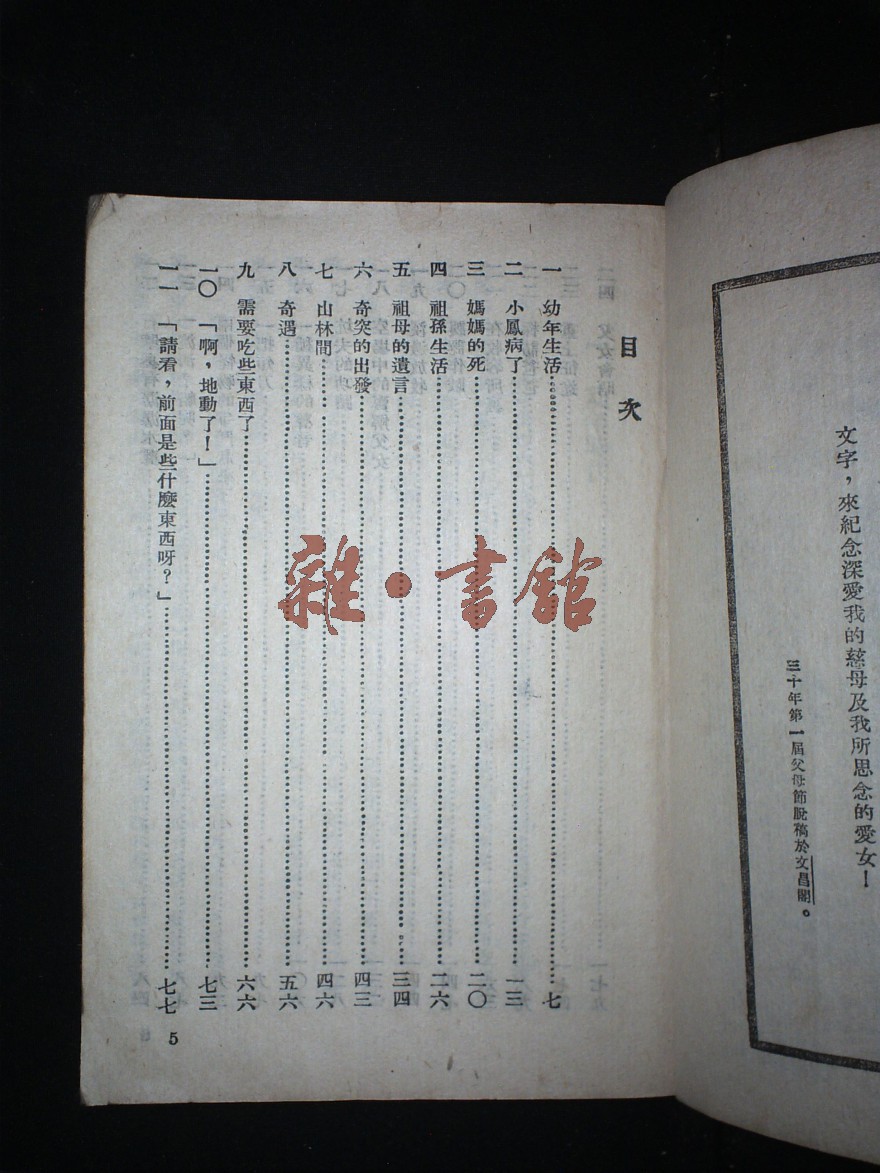 文字，來紀念深愛我的慈母及我所思念的愛女！
三十年第一屆父母節脫稿於文昌閣。
目次
一 幼年生活 七
二 小鳳病了 一三
三 媽媽的死 二〇
四 祖孫生活 二六
五 祖母的遺言 三四
六 奇突的出發 四三
七 山林間 四六
八 奇遇 五六
九 需要吃些東西了 六六
一〇 「啊，地動了！」 七三
一一 「請看，前面是些什麼東西呀？」 七七
5
雜·書館